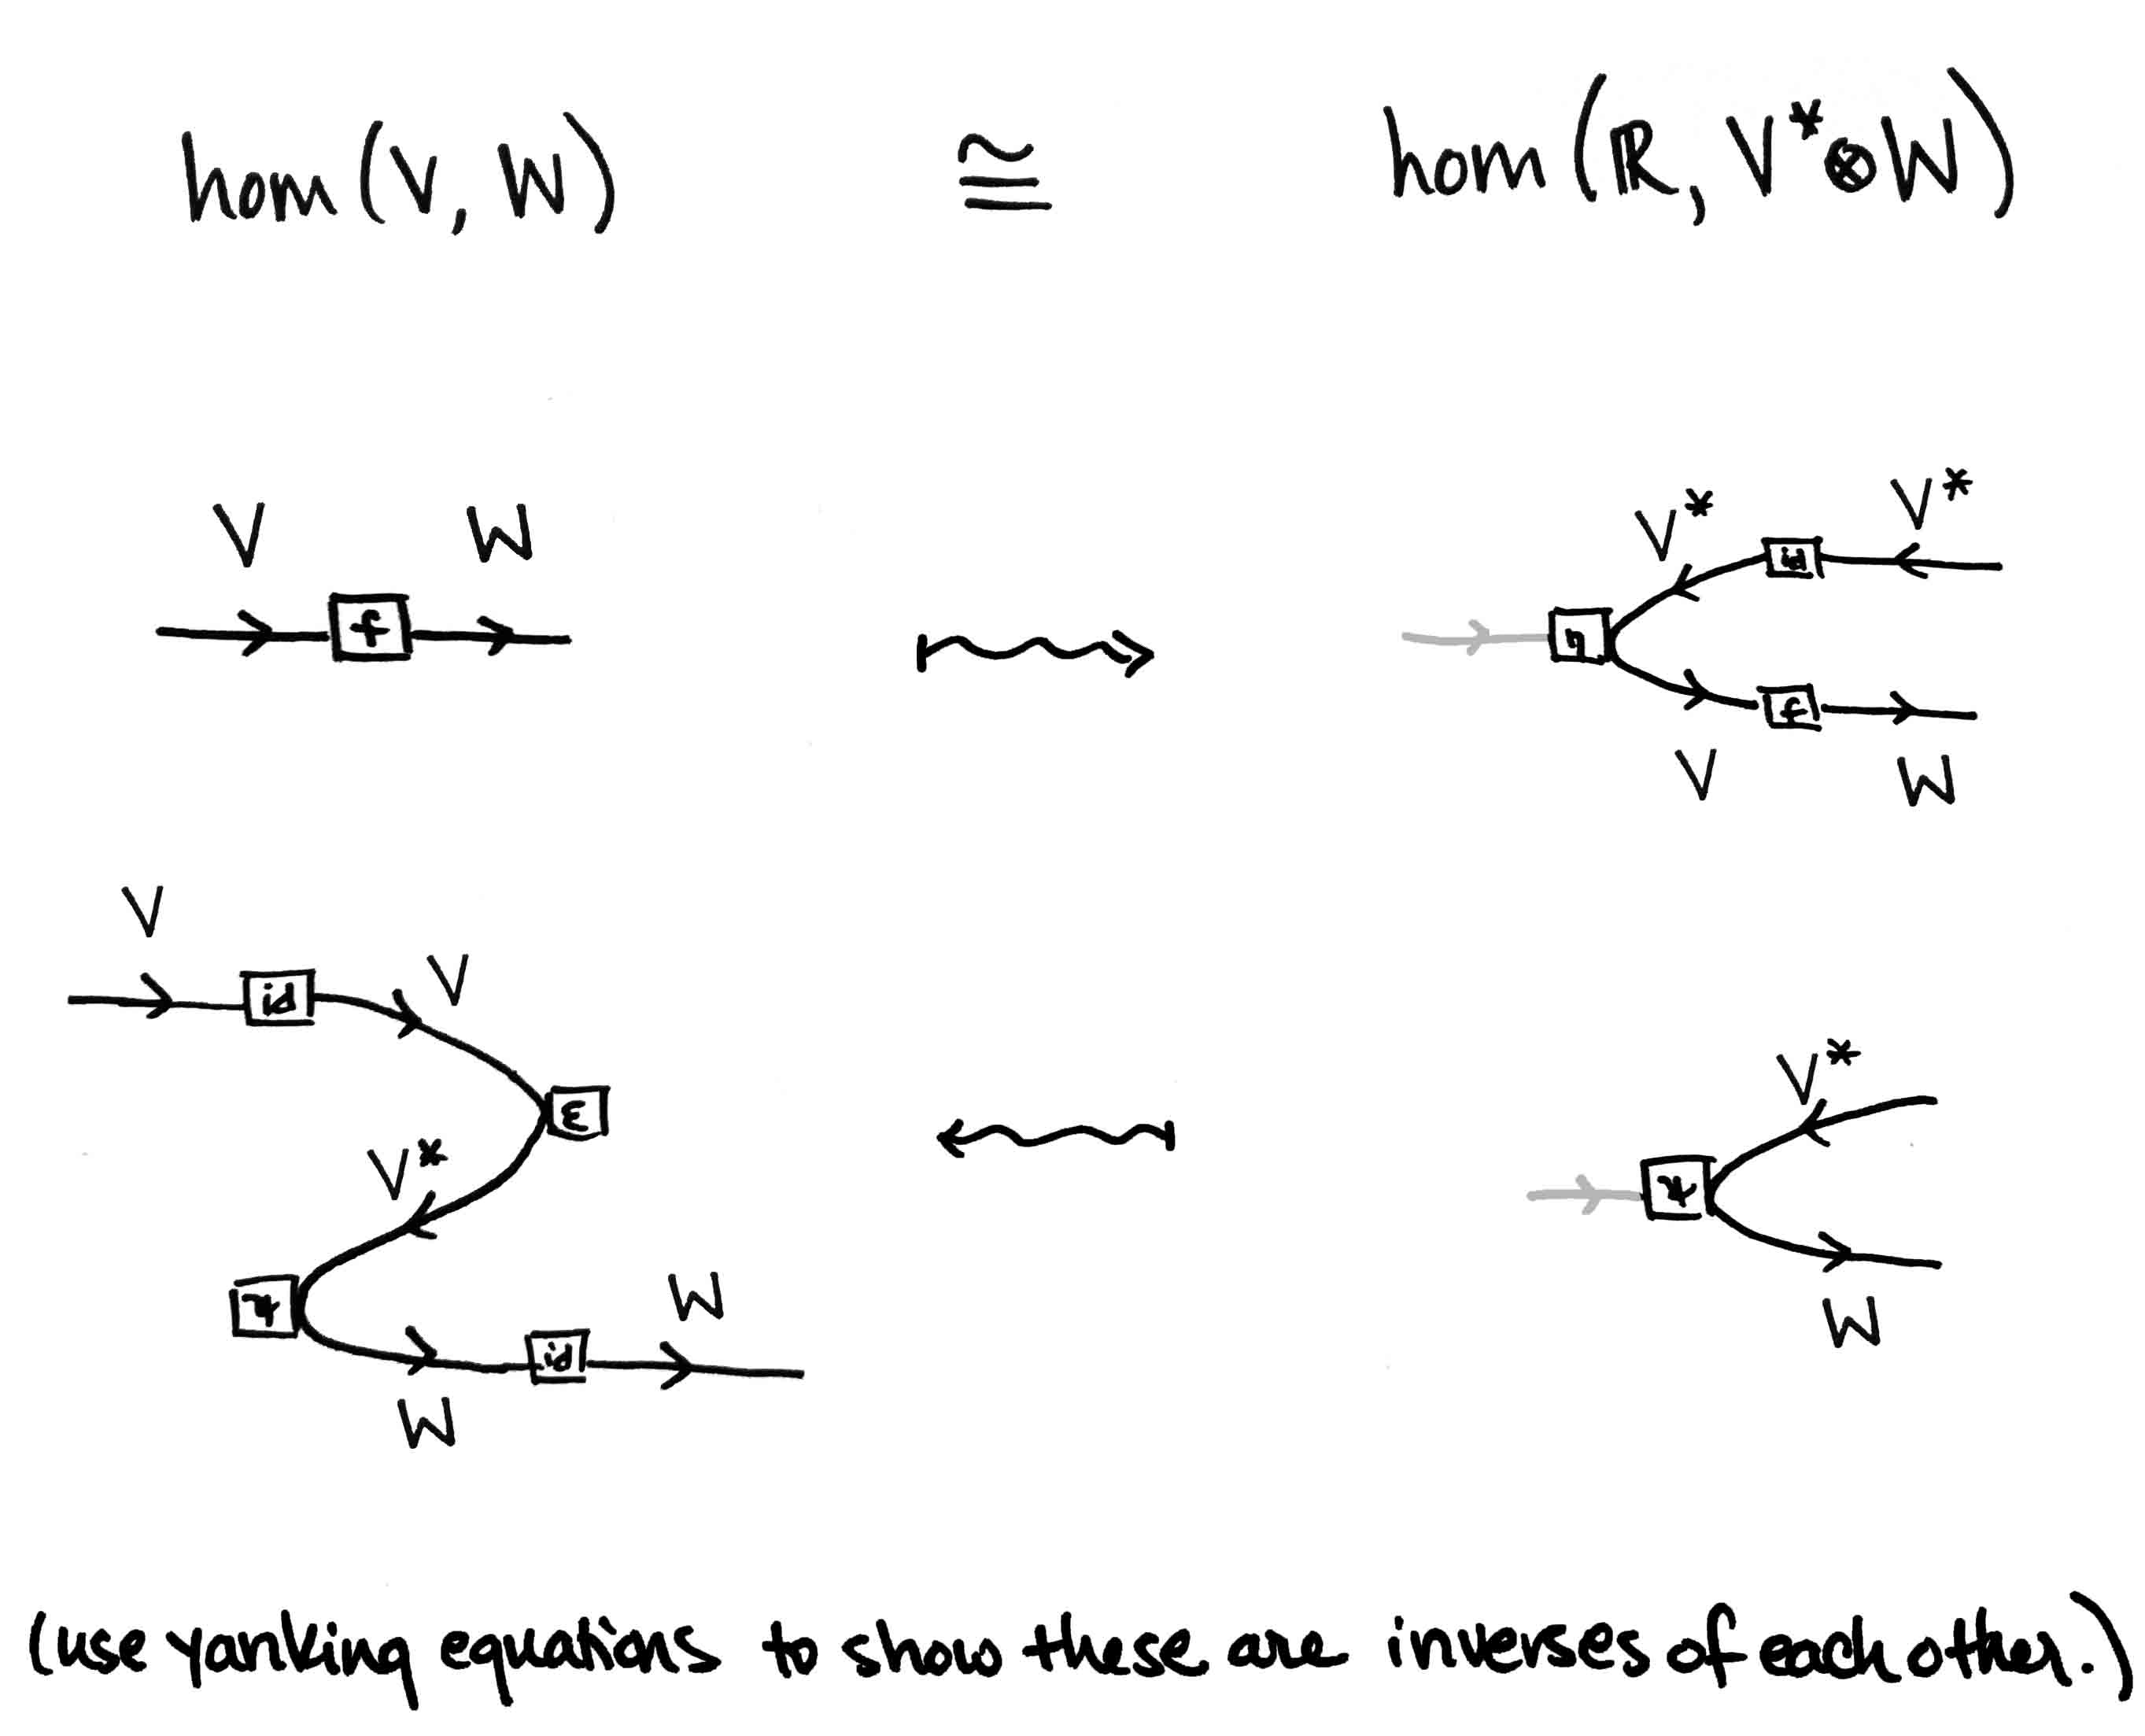 hom(V, W) ≅ hom(ℝ, V*⊗W)
V W
V* V*
id
f
η
f
V W
V
V
id
ε
V*
V*
ψ
ψ
W
W
id
W
(use yanking equations to show these are inverses of each other.)